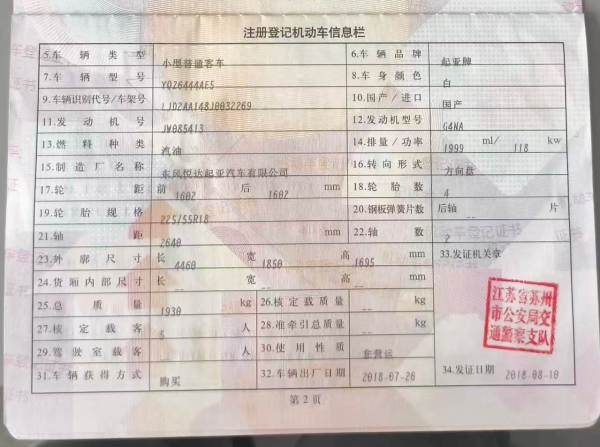 注册登记机动车信息栏
5.车辆类型 小型普通客车 6.车辆品牌 起亚牌
7.车辆型号 YQZ6444AE5 8.车身颜色 白
9.车辆识别代号/车架号 LJDZAA148J0032269 10.国产/进口 国产
11.发动机号 JW085413 12.发动机型号 G4NA
13.燃料种类 汽油 14.排量/功率 1999 ml/ 118 kw
15.制造厂名称 东风悦达起亚汽车有限公司 16.转向形式 方向盘
17.轮距 前 1602 后 1602 mm 18.轮胎数 4
19.轮胎规格 225/55R18 20.钢板弹簧片数 后轴 -- 片
21.轴距 2640 mm 22.轴数 2
23.外廓尺寸 长 4460 宽 1850 高 1695 mm 33.发证机关章
24.货厢内部尺寸 长 -- 宽 -- 高 -- mm
25.总质量 1930 kg 26.核定载质量 -- kg
27.核定载客 5 人 28.准牵引总质量 -- kg
江苏省苏州
市公安局交
通警察支队
29.驾驶室载客 -- 人 30.使用性质 非营运
31.车辆获得方式 购买 32.车辆出厂日期 2018-07-26 34.发证日期 2018-08-10
第2页